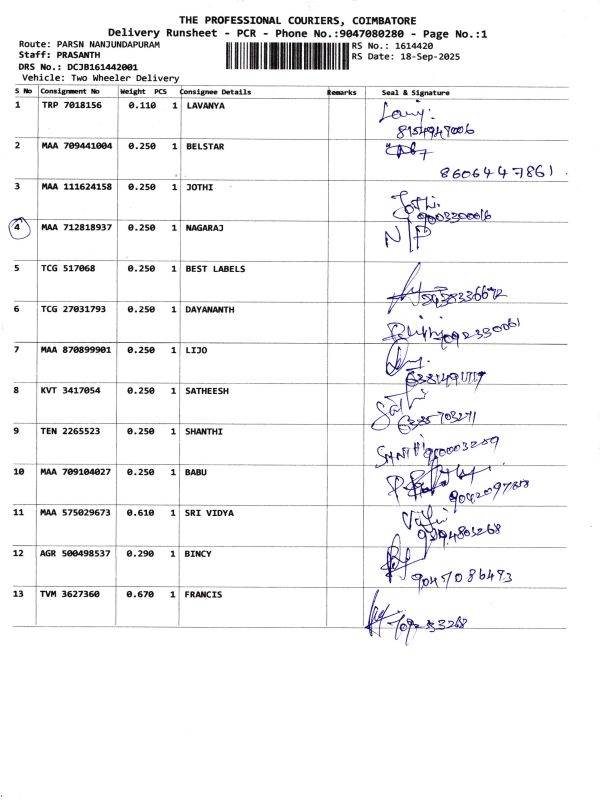 THE PROFESSIONAL COURIERS, COIMBATORE
Delivery Runsheet - PCR - Phone No.:9047080280 - Page No.:1
Route: PARSN NANJUNDAPURAM RS No.: 1614420
Staff: PRASANTH RS Date: 18-Sep-2025
DRS No.: DCJB161442001
Vehicle: Two Wheeler Delivery
S No Consignment No Weight PCS Consignee Details Remarks Seal & Signature
1 TRP 7018156 0.110 1 LAVANYA
2 MAA 709441004 0.250 1 BELSTAR
8606447861
3 MAA 111624158 0.250 1 JOTHI Jothi.
9003300016
4 MAA 712818937 0.250 1 NAGARAJ N/P
5 TCG 517068 0.250 1 BEST LABELS
6 TCG 27031793 0.250 1 DAYANANTH
7 MAA 870899901 0.250 1 LIJO
8 KVT 3417054 0.250 1 SATHEESH
9 TEN 2265523 0.250 1 SHANTHI
10 MAA 709104027 0.250 1 BABU
11 MAA 575029673 0.610 1 SRI VIDYA
12 AGR 500498537 0.290 1 BINCY
9047086473
13 TVM 3627360 0.670 1 FRANCIS